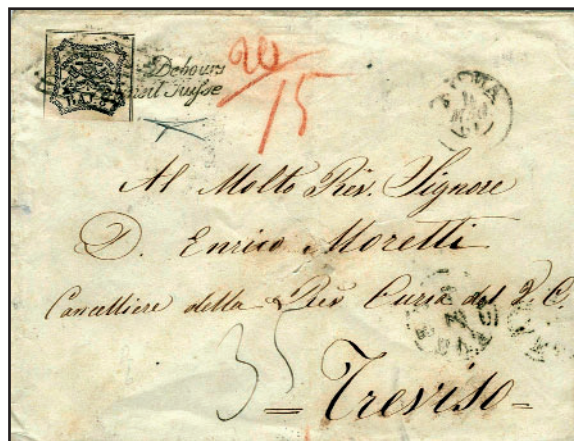 Debours
Transit Suisse
20
15
ROMA
Al Molto Rev. Signore
D. Enrico Moretti
Cancelliere della Rev Curia del P. C.
35
= Treviso =